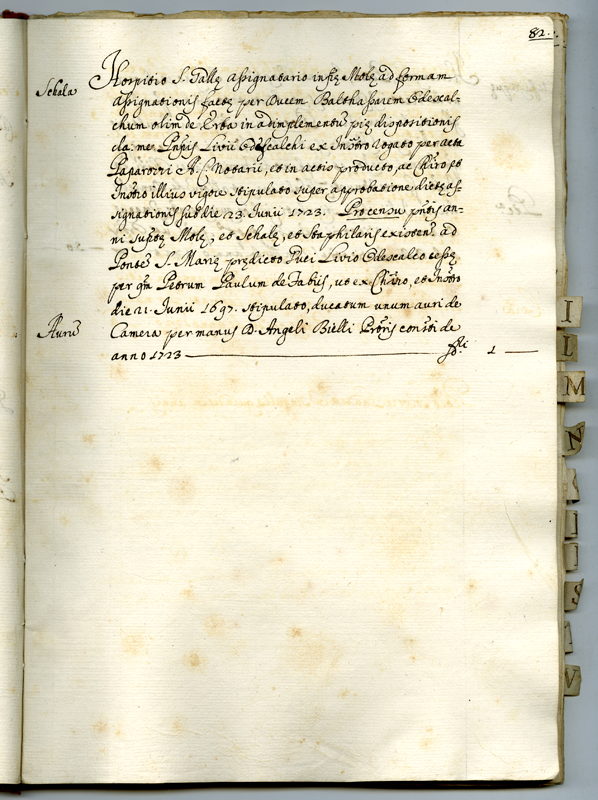 82.
Schala
Hospitio S. Gallę assignatario infrę Molę ad formam
assignationis factę per Ducem Balthassarem Odescal-
chum olim de Erba in adimplementũ pię dispositionis
cla: me: Pñpis Livii Odescalchi ex Inst̃ro rogato per acta
Paparozzi A. C. Notarii, et in actis producto, ac Chiro et
Inst̃ro illius vigore stipulato super approbatione dictę as-
signationis sub die 23. Junii 1723. Pro censu pñtis an-
ni suprę Molę, et Schalę, et Staphilaris existeñ. ad
Ponte S. Marię prędicto Duci Livio Odescalco cessę
per qm̃ Petrum Paulum de Fabiis, ut ex Chiro, et Inst̃ro
die 21. Junii 1697. stipulato, ducatum unum auri de
Aurũ
Camera per manus D. Angeli Bielli
anno 1723 1
I
L
M
N
S
V